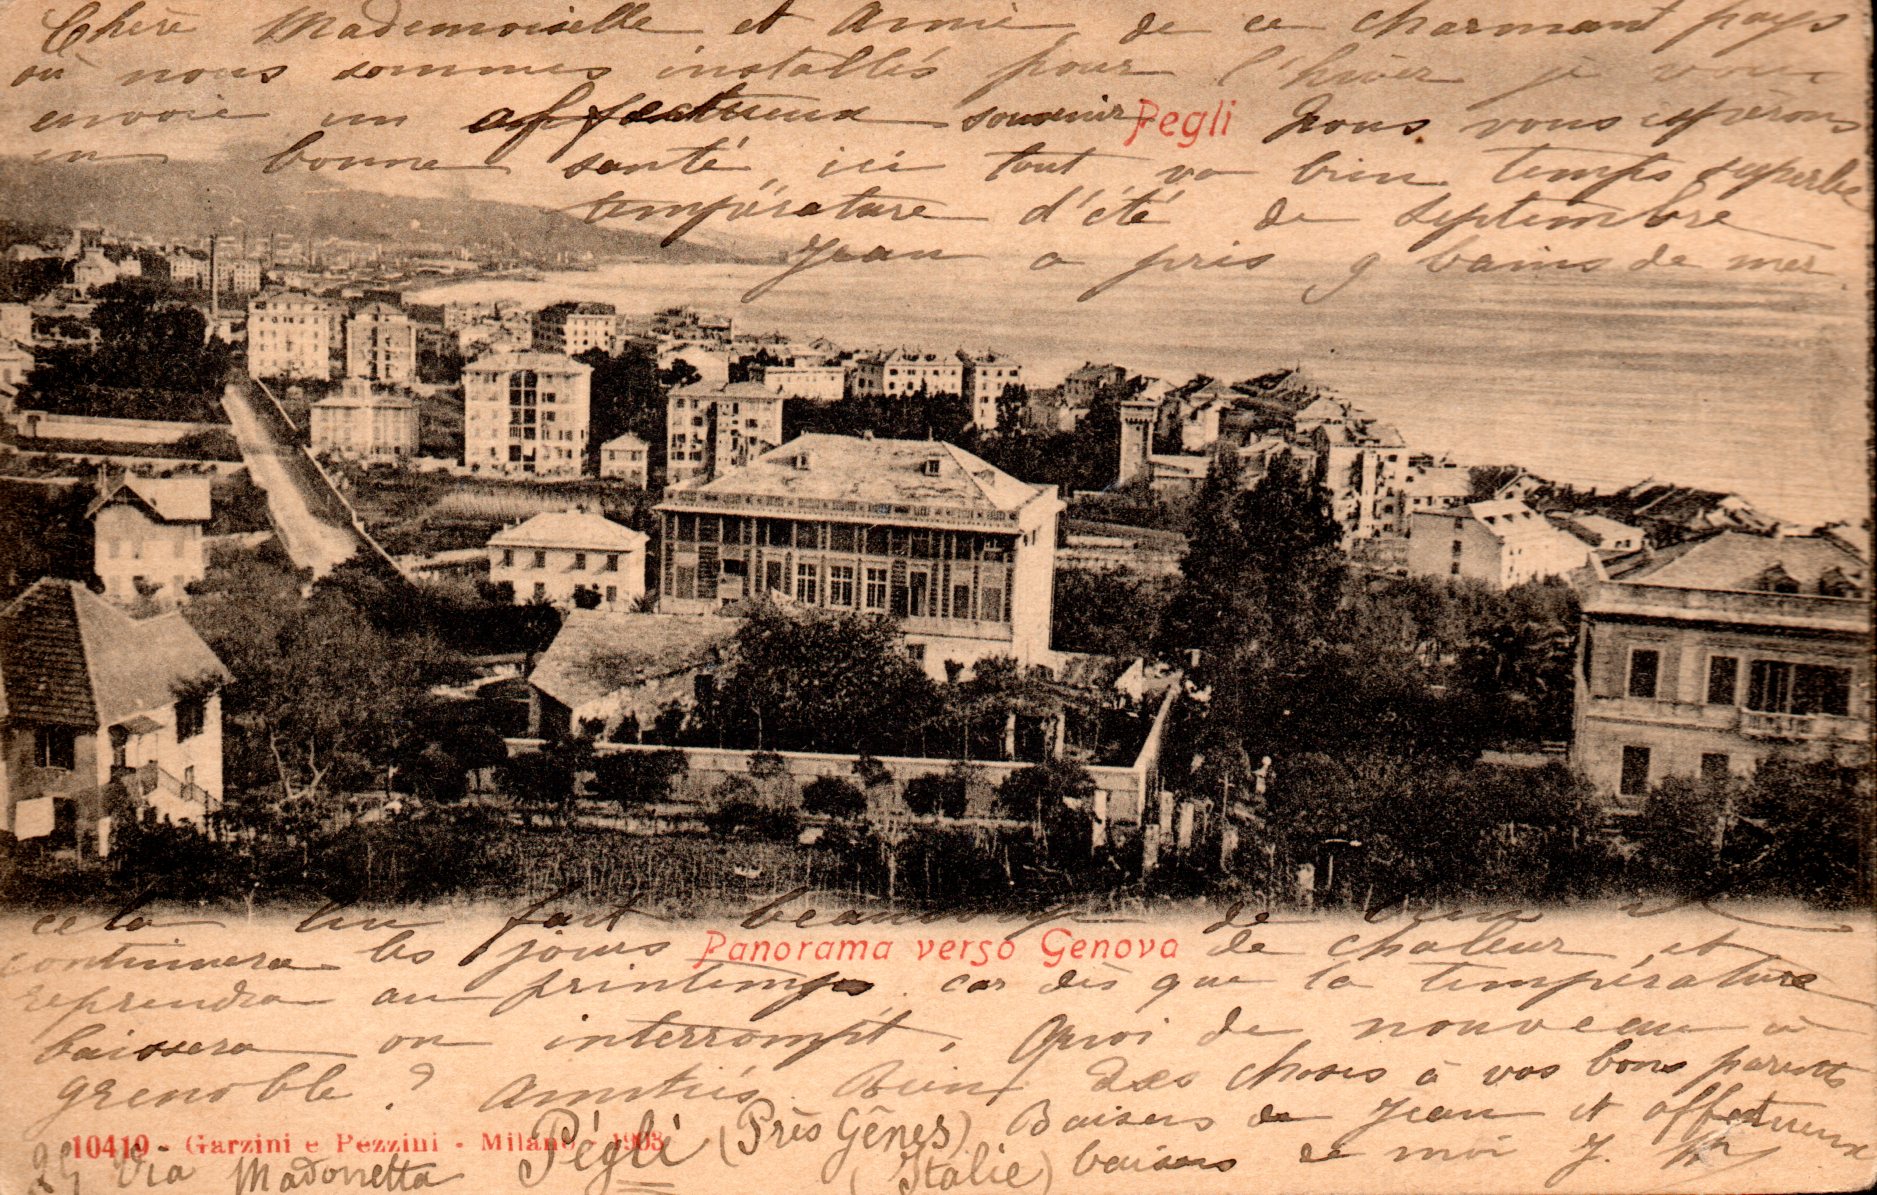 Chère Mademoiselle et Amie, de ce charmant pays
où nous sommes installés pour l'hiver je vous
envoie un affectueux souvenir Nous vous espérons
Pegli
en bonne santé, ici tout va bien temps superbe
température d'été de septembre
Jean a pris 9 bains de mer
cela lui fait beaucoup de bien et
continuera les jours de chaleur, et
Panorama verso Genova
reprendra au printemps, car dès que la température
baissera on interrompt. Quoi de nouveau à
Grenoble? Amitiés. Bien des choses à vos bons parents
Baisers de Jean et affectueux
baisers de moi J.
10419 - Garzini e Pezzini - Milano - 1903
Via Madonetta Pégli (Près Gênes)
(Italie)